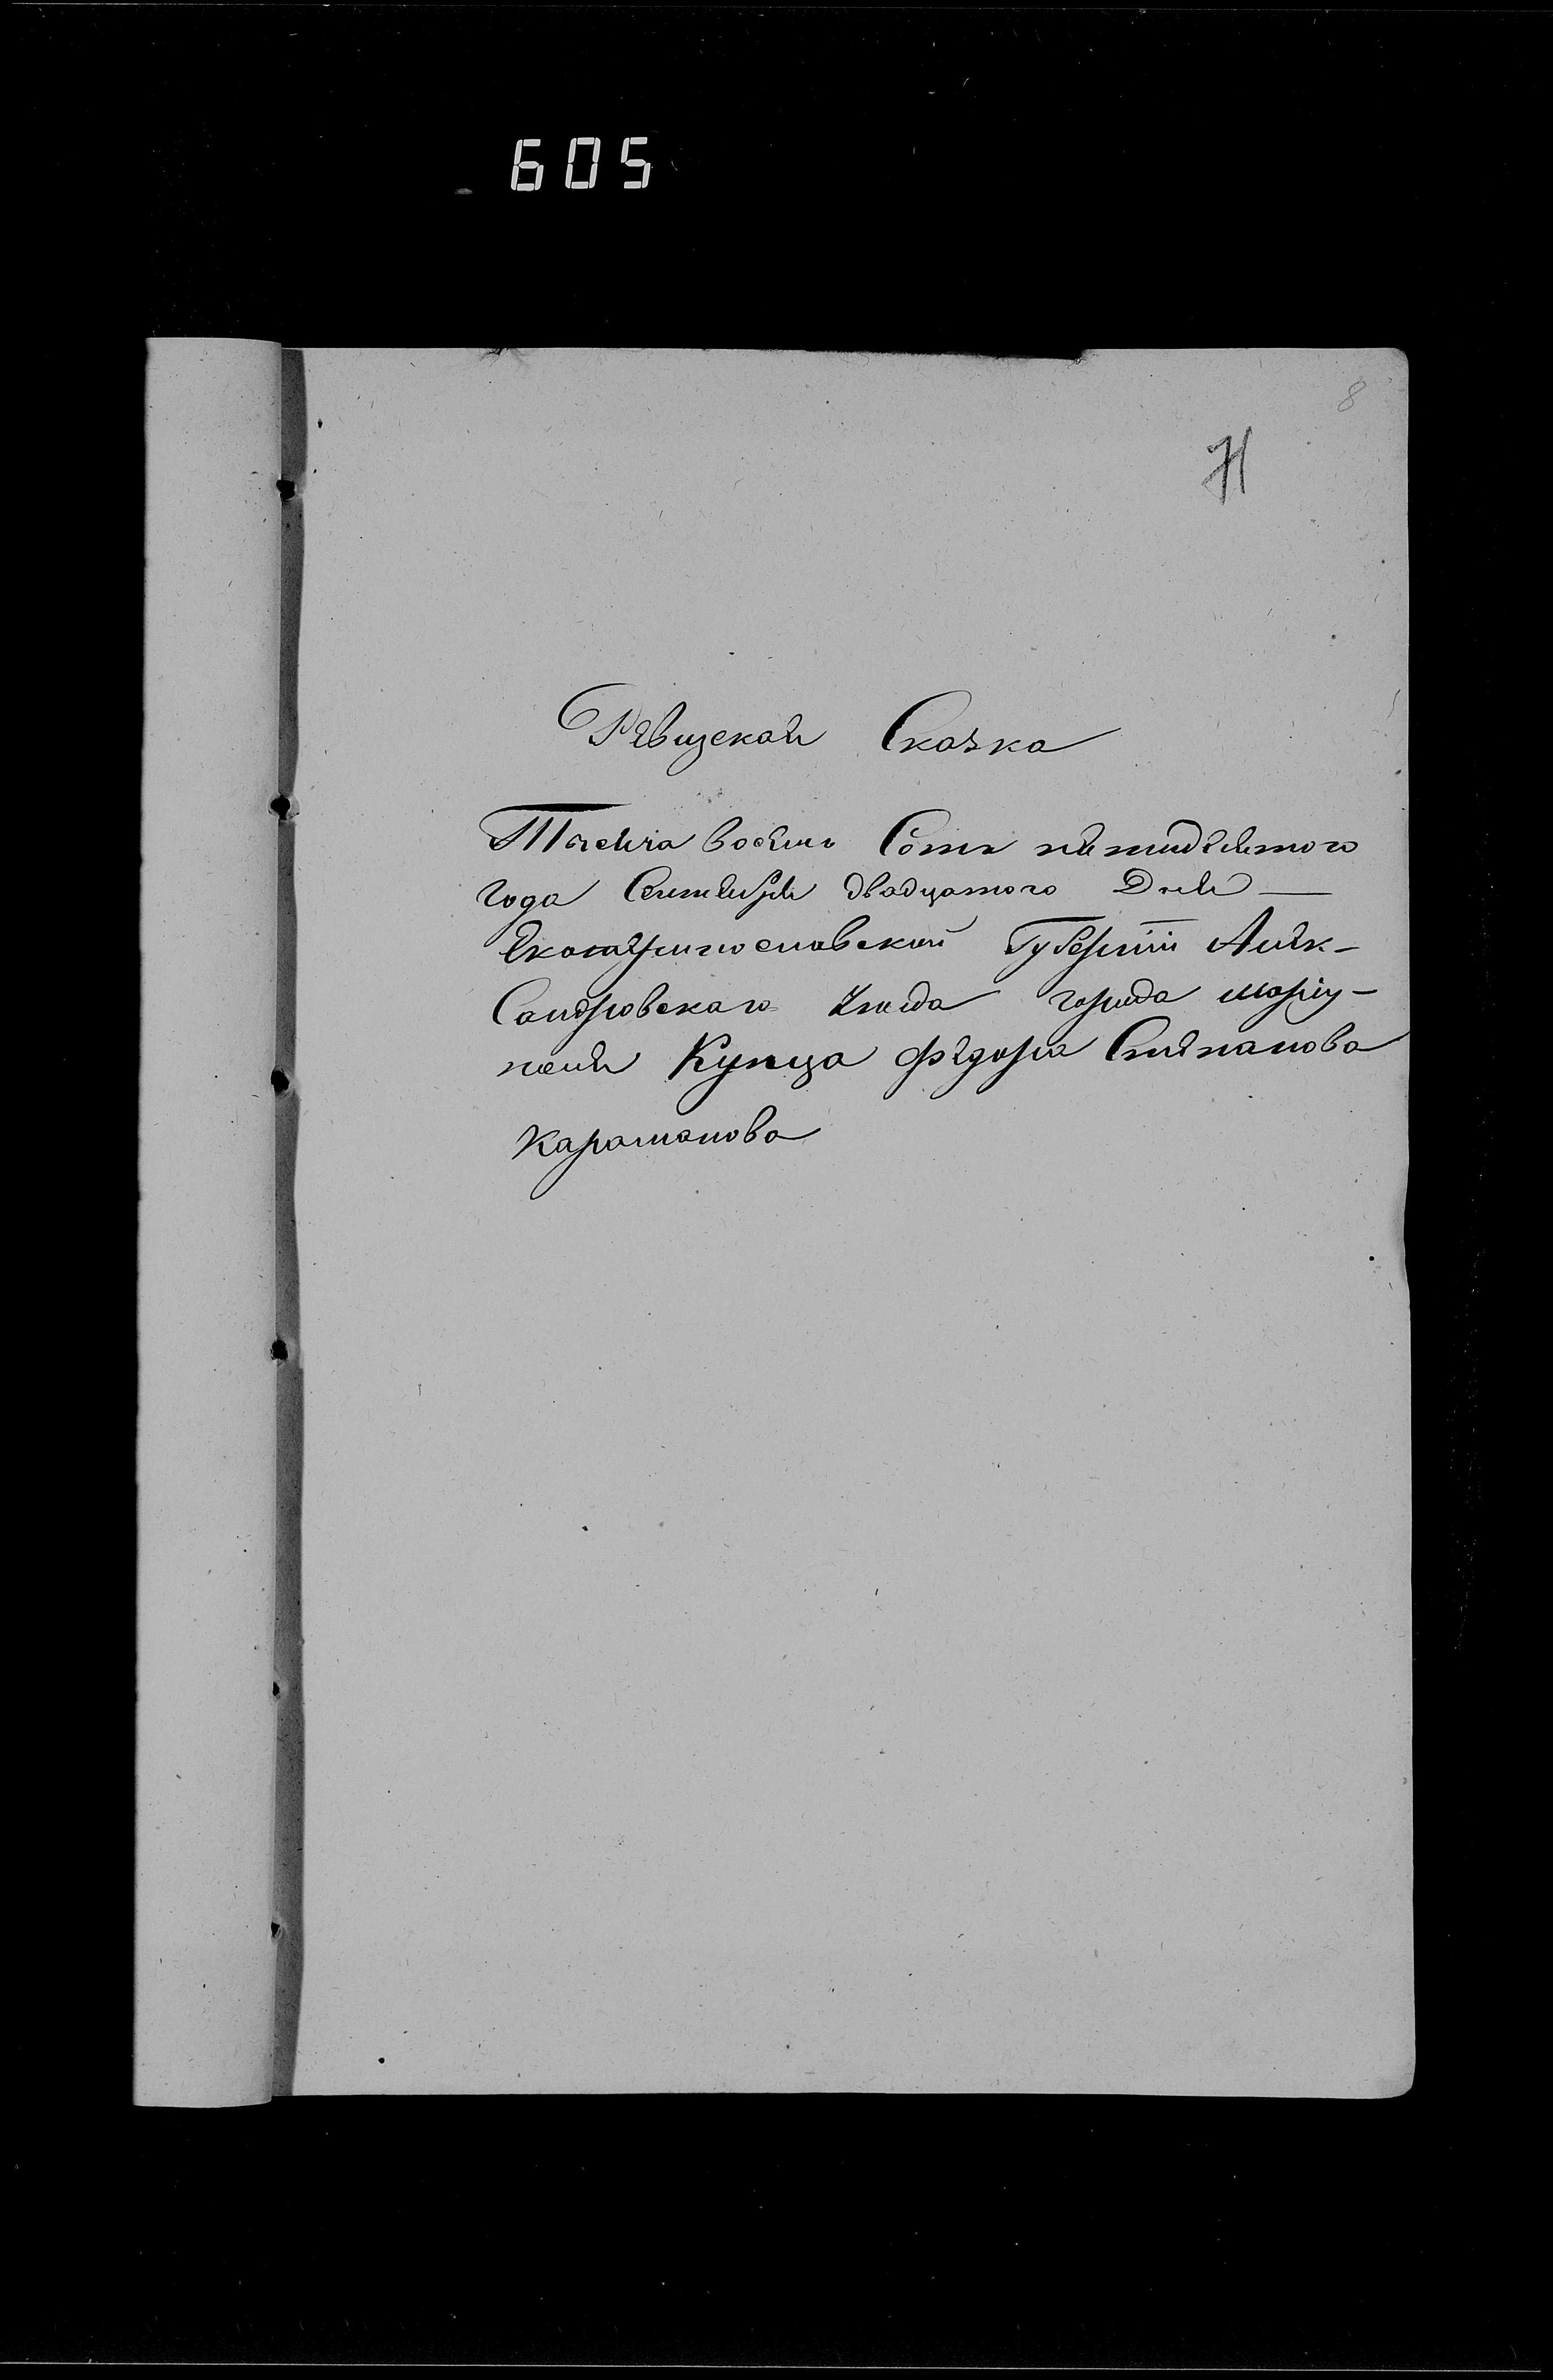 605
8
71
Ревизская Сказка
Тысеча восемь Сотъ пятидесятого
года Сентября двадцатого Дня —
Екатеринославской Губернiи Алек-
Сандровскаго уезда города марiу-
поля Купца Федора Степанова
Караманова